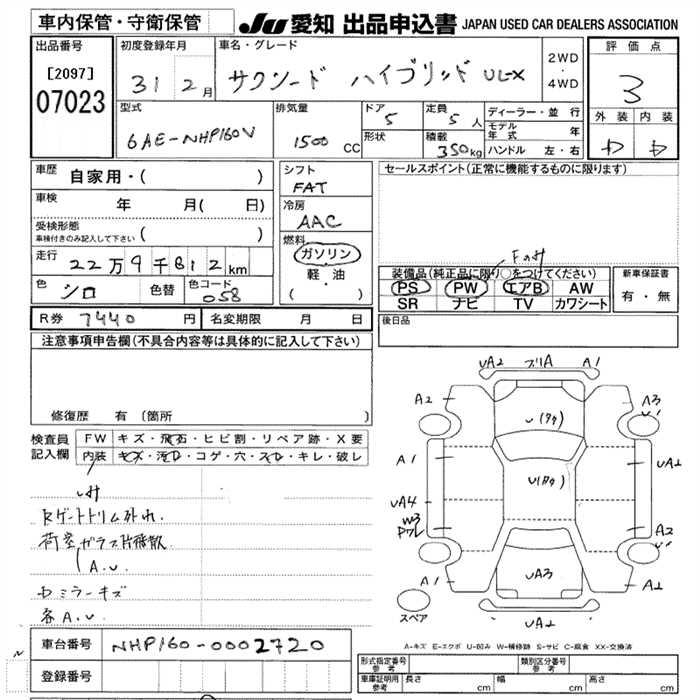 車内保管・守衛保管 JU 愛知 出品申込書 JAPAN USED CAR DEALERS ASSOCIATION
出品番号 初度登録年月 車名・グレード 2WD・4WD 評価点
[2097] 07023 31 2月 サクシード ハイブリッド UL-X 3
型式 排気量 ドア 定員 ディーラー・並行 外装 内装
6AE-NHP160V 1500 CC 5 5人 モデル年式 年
形状 積載 350kg ハンドル 左・右
車歴 自家用・( ) シフト FAT セールスポイント(正常に機能するものに限ります)
車検 年 月( 日) 冷房 AAC
受検形態 車検付きのみ記入して下さい ( ) 燃料 ガソリン 軽・油 ( )
走行 22万9千812km Fのみ
装備品(純正品に限り○をつけてください) 新車保証書
色 シロ 色替 色コード 058 PS PW エアB AW 有・無
SR ナビ TV カワシート
R券 7440円 名変期限 月 日 後日品
注意事項申告欄(不具合内容等は具体的に記入して下さい)
修復歴 有 (箇所
UA2 A1
A2 A3 U'
A1 UA2
UA4 W3 A2 U'
UA3
A1 A2
UA2
スペア
検査員記入欄 FW キズ・飛石・ヒビ割・リペア跡・X要
内装 キズ・汚レ・コゲ・穴・スレ・キレ・破レ
シミ
Rゲートトリム外れ
荷室ガラス片飛散
A.U
ミラーキズ
各A.U
車台番号 NHP160-0002720
A-キズ E-エクボ U-凹み W-補修跡 S-サビ C-腐食 XX-交換済
登録番号 型式指定番号 参考 類別区分番号 参考
車庫証明用 参考 長さ cm 幅 cm 高さ cm